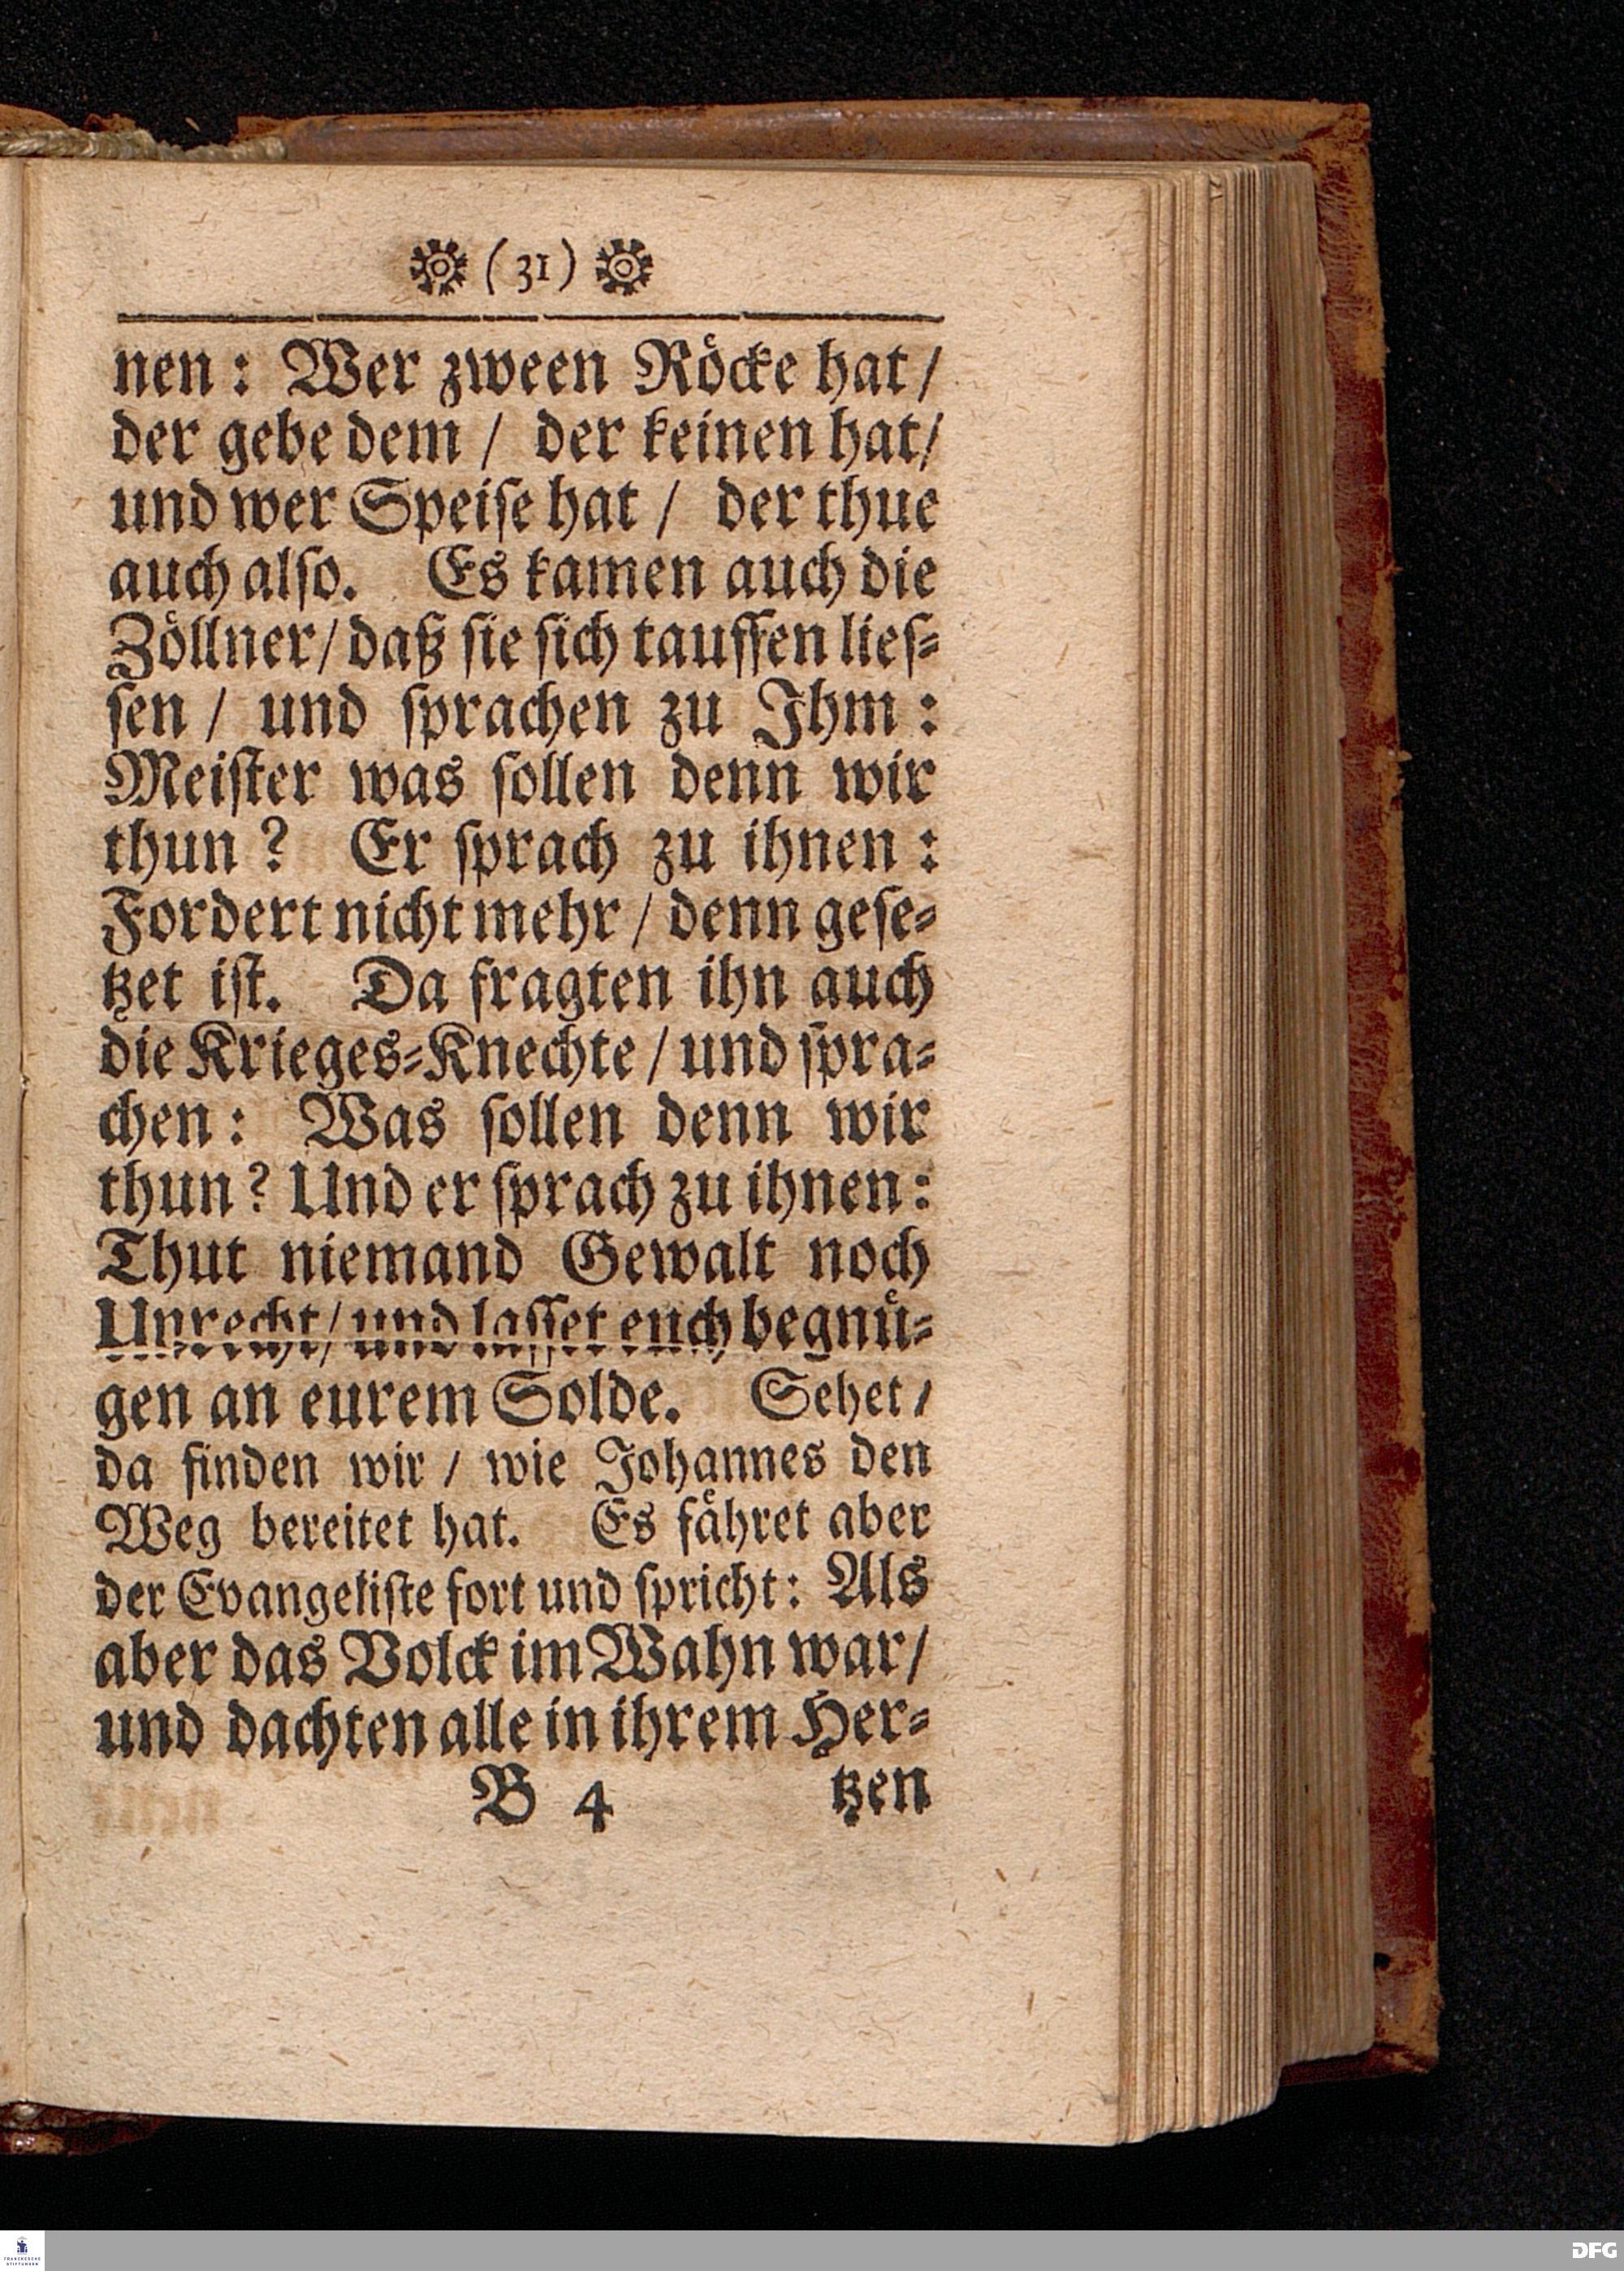 (31)
nen: Wer zween Röcke hat/
der gebe dem / der keinen hat/
und wer Speiſe hat / der thue
auch alſo. Es kamen auch die
Zöllner/ daß ſie ſich tauffen lieſ-
ſen / und ſprachen zu Ihm:
Meiſter was ſollen denn wir
thun? Er ſprach zu ihnen:
Fordert nicht mehr / denn geſe-
tzet iſt. Da fragten ihn auch
die Krieges-Knechte / und ſpra-
chen: Was ſollen denn wir
thun? Und er ſprach zu ihnen:
Thut niemand Gewalt noch
Unrecht/ und laſſet euch begnü-
gen an eurem Solde. Sehet/
da finden wir / wie Johannes den
Weg bereitet hat. Es fähret aber
der Evangeliſte fort und ſpricht: Als
aber das Volck im Wahn war/
und dachten alle in ihrem Her-
B 4 tzen
FRANCKESCHE
STIFTUNGEN
DFG